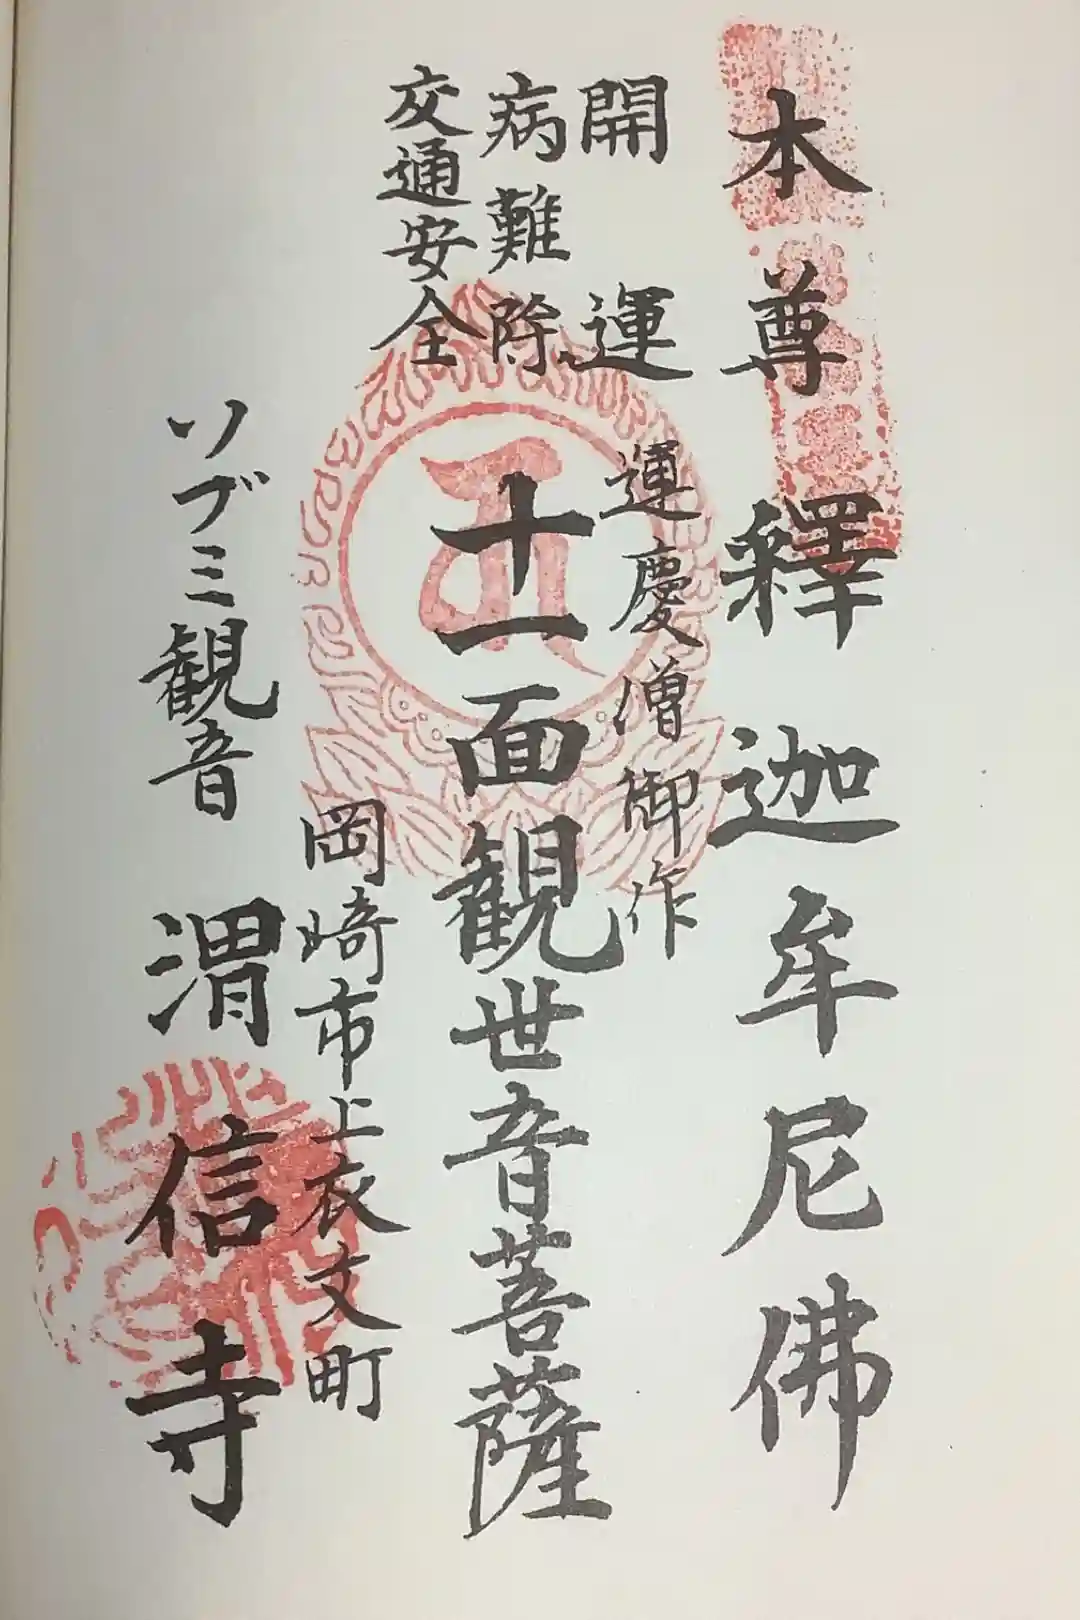 本尊釋迦牟尼佛
開運
病難除
交通安全
運慶僧御作
十一面観世音菩薩
岡崎市上衣文町
ソブミ観音
渭信寺